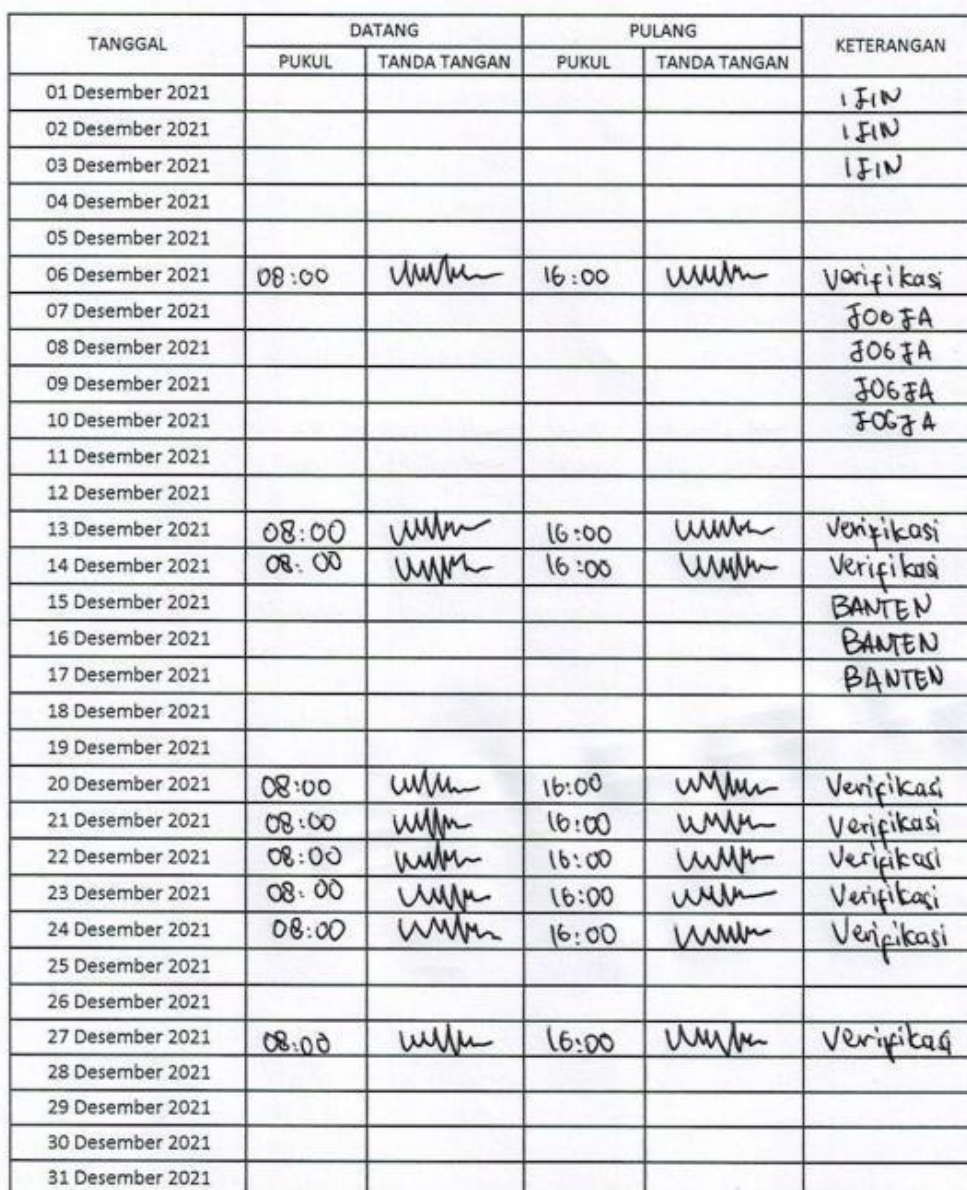 TANGGAL DATANG PULANG KETERANGAN
PUKUL TANDA TANGAN PUKUL TANDA TANGAN
01 Desember 2021 IJIN
02 Desember 2021 IJIN
03 Desember 2021 IJIN
04 Desember 2021
05 Desember 2021
06 Desember 2021 08:00 16:00 Verifikasi
07 Desember 2021 JOGJA
08 Desember 2021 JOGJA
09 Desember 2021 JOGJA
10 Desember 2021 JOGJA
11 Desember 2021
12 Desember 2021
13 Desember 2021 08:00 16:00 Verifikasi
14 Desember 2021 08:00 16:00 Verifikasi
15 Desember 2021 BANTEN
16 Desember 2021 BANTEN
17 Desember 2021 BANTEN
18 Desember 2021
19 Desember 2021
20 Desember 2021 08:00 16:00 Verifikasi
21 Desember 2021 08:00 16:00 Verifikasi
22 Desember 2021 08:00 16:00 Verifikasi
23 Desember 2021 08:00 16:00 Verifikasi
24 Desember 2021 08:00 16:00 Verifikasi
25 Desember 2021
26 Desember 2021
27 Desember 2021 08:00 16:00 Verifikasi
28 Desember 2021
29 Desember 2021
30 Desember 2021
31 Desember 2021